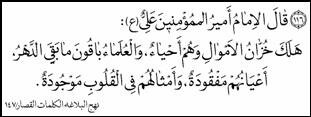 ١١٦ قَالَ الإِمَامُ أَمِيرُ المُؤْمِنِينَ عَلِيٌّ (ع):
هَلَكَ خُزَّانُ الأَمْوَالِ وَهُمْ أَحْيَاءٌ، وَالْعُلَمَاءُ بَاقُونَ مَا بَقِيَ الدَّهْرُ،
أَعْيَانُهُمْ مَفْقُودَةٌ، وَأَمْثَالُهُمْ فِي الْقُلُوبِ مَوْجُودَةٌ.
نهج البلاغه الكلمات القصار/١٤٧